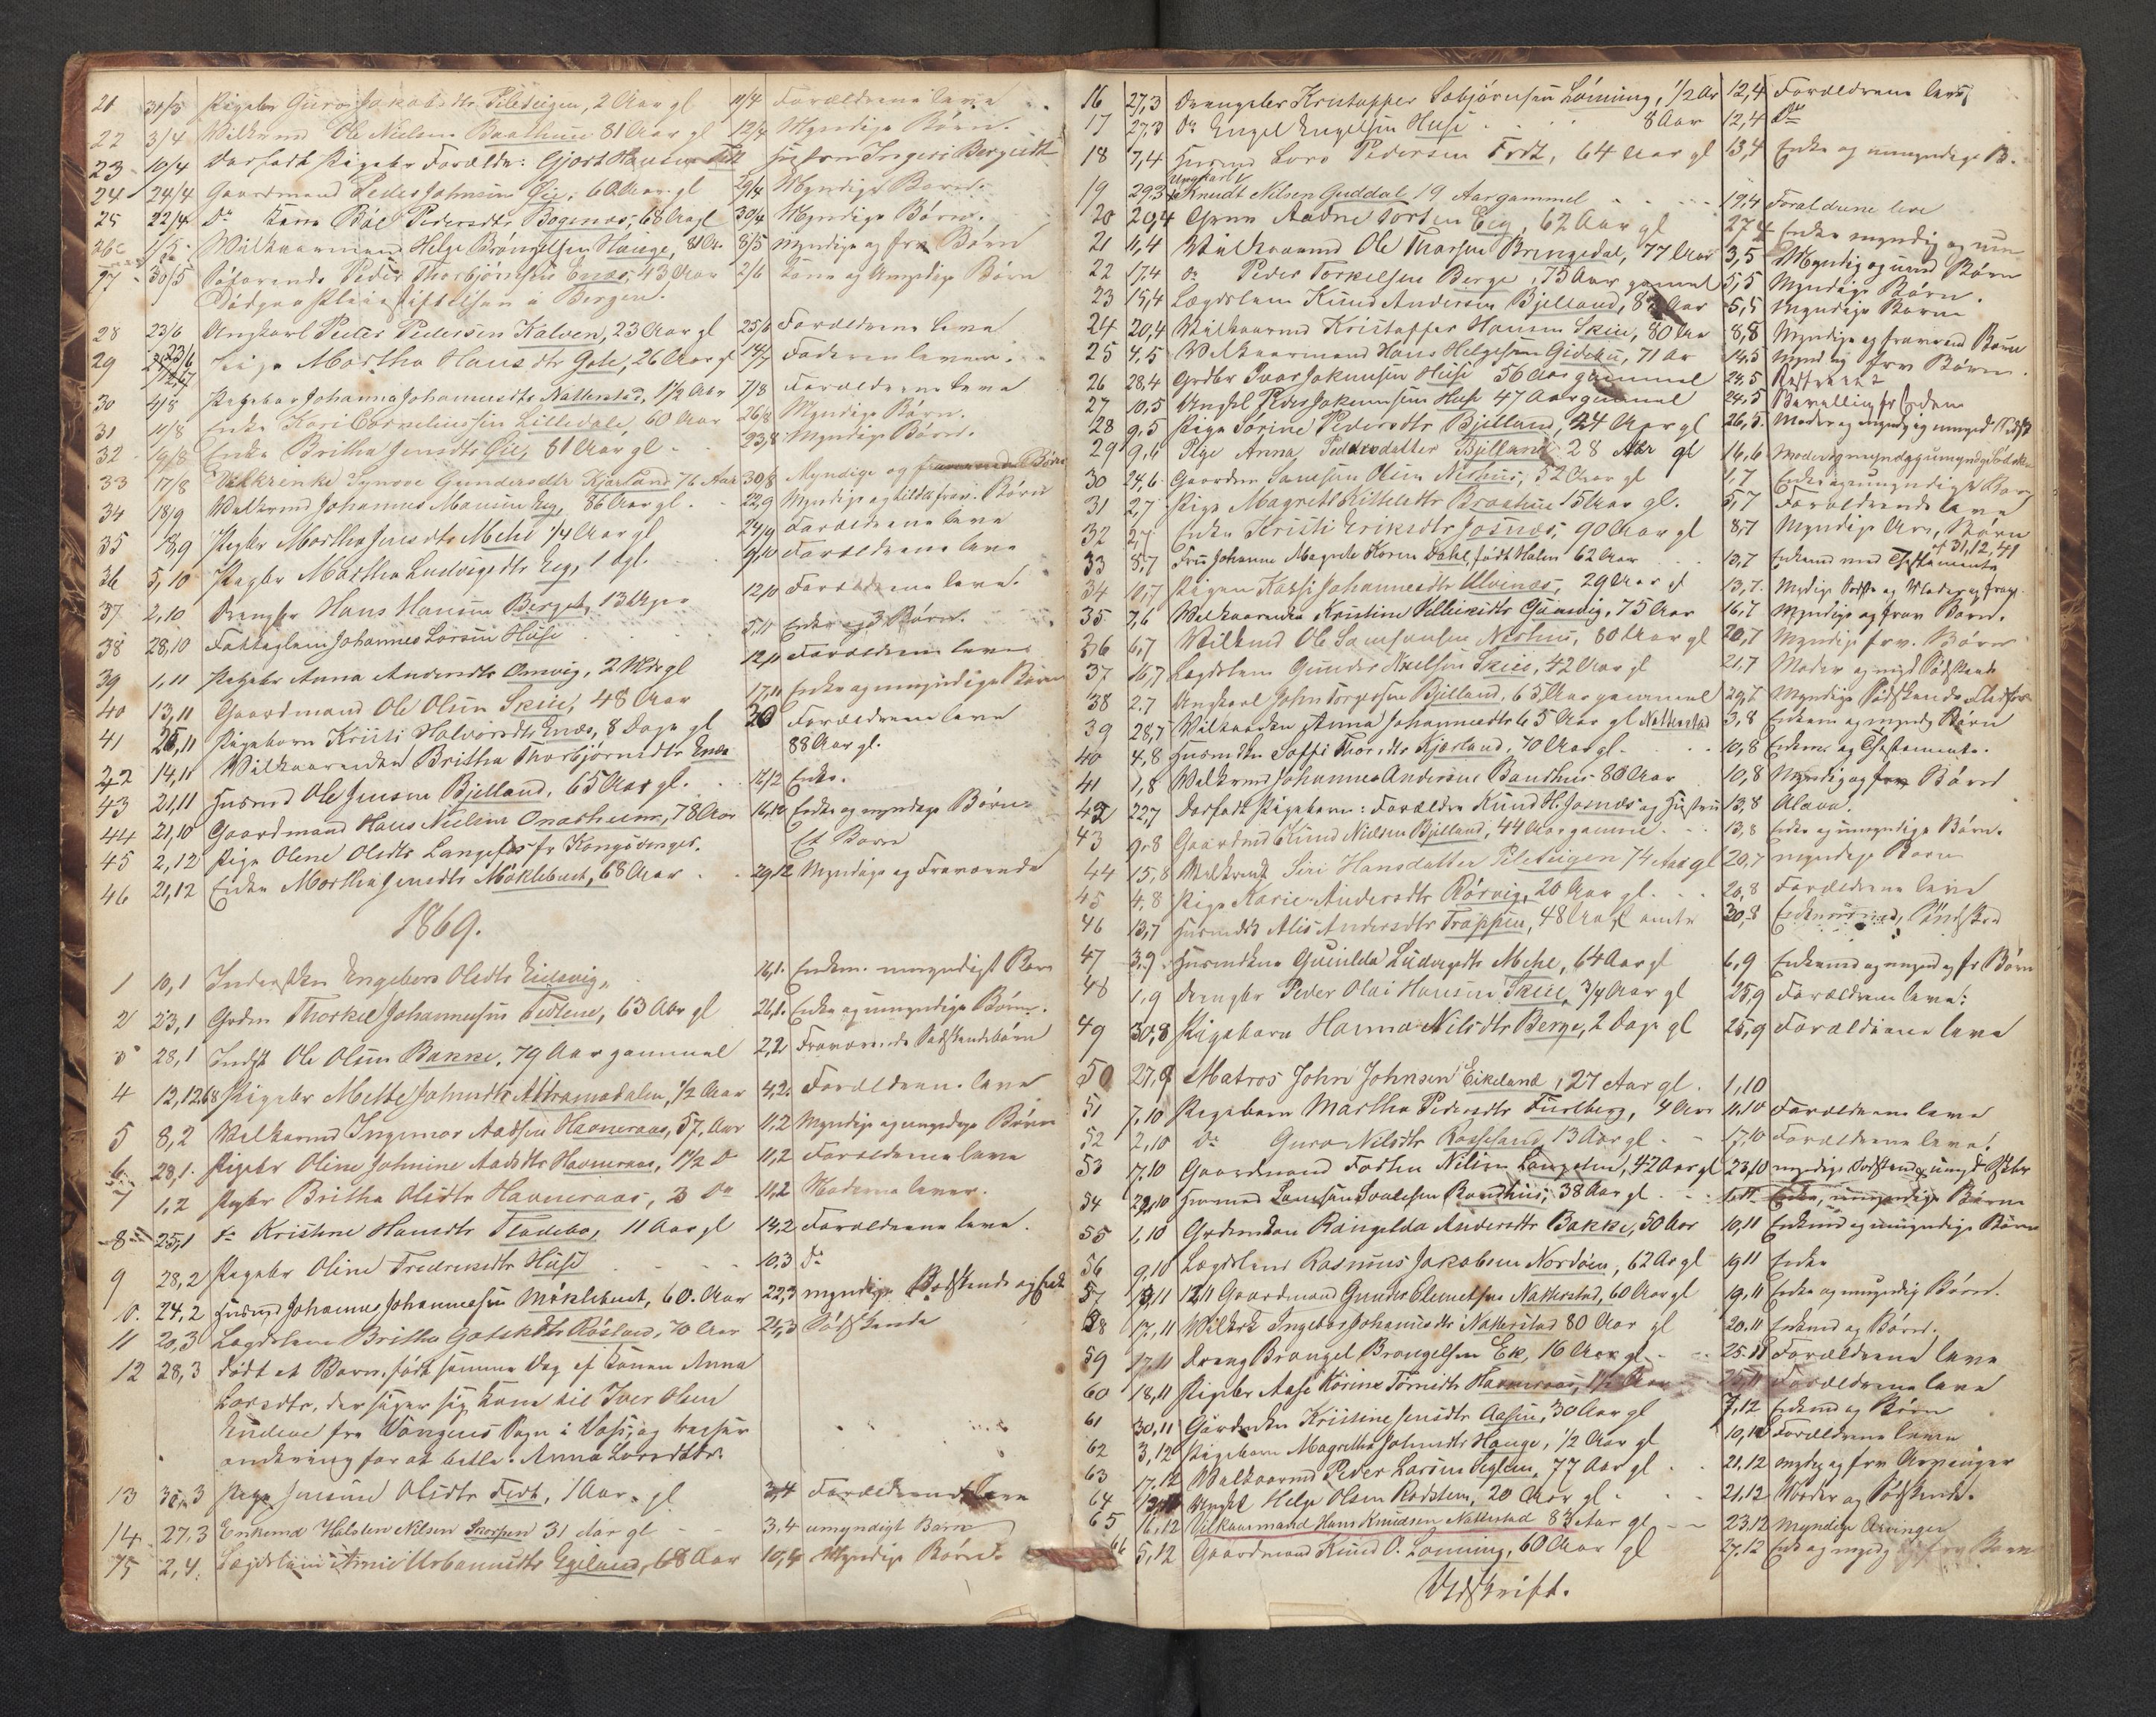 21 31/3 Pigebr Guro Jakobsdtr Teleteigen, 2 Aar gl 11/4 Forældrene leve
22 3/4 Wilkrmd Ole Nielsen Baathuus 81 Aar gl 12/4 Myndige Børn.
23 10/4 Dødfødt Pigebr Forældr: Gjert Hansen
24 24/4 Gaardmand Peder Johnsen Øie, 60 Aar gl 29/4 Myndige Børn.
25 22/4 Do Kone Pedersdtr Bogenæs, 68 Aar gl 30/4 Myndige Børn.
26 1/5 Wilkaarmand Helge Brønnelsen Hauge, 81 Ar 8/5 Myndige og frav Børn
27 30/5 Søfarende Peder Thorbjørnsen Enæs, 43 Aar 2/6 Kone og Umyndige Børn
Død paa Pleiestiftelsen i Bergen.
28 23/6 Ungkarl Peder Pedersen Kalven, 23 Aar gl 25/6 Forældrene leve
29 Pige Martha Hansdtr Gole, 26 Aar gl 14/7 Faderen lever.
30 4/8 Pigebarn Johanna Johannesdtr Natterstad, 1½ Aar 7/8 Forældrene leve
31 11/8 Enke Kari Corneliussdn Lilledale, 60 Aar 26/8 Myndige Børn.
32 19/8 Enke Britha Jensdtr Øie, 81 Aar gl 23,8 Myndige Børn.
33 17/8 Vilkrenke Synnove Gundersdtr Kjærland 76 Aar 30/8 Myndige og fraværende Børn
34 18/9 Wilkrmd Johannes Monsen Eeg, 86 Aar gl 22,9 Myndige og tildels frav. Børn
35 18,9 Pigebr Martha Jensdtr Mehl 1/4 Aar gl 24/9 Forældrene leve
36 5,10 Pigebr Martha Ludvigsdtr Eeg, 1 dgl. 9/10 Forældrene leve
37 2,10 Drengbr Hans Hansen Berget, 13 Uger 12/10 Forældrene leve.
38 28,10 Fattiglem Johannes Larsen Huse 5,11 Enke og 3 Børn.
39 1,11 Pigebr Anna Andersdtr Omvig, 2 Mdr gl 12/11 Forældrene leve
40 13,11 Gaardmand Ole Olsen Skeie, 48 Aar 17,11 Enke og umyndige Børn
41 25,11 Pigebarn Kristi Halvorsdtr Enæs, 8 Dage gl 30 Forældrene leve
42 14,11 Wilkaarenken Britha Thorbjørnsdtr Enæs 88 Aar gl.
43 21,11 Husmd Ole Jensen Bjelland, 65 Aar gl. 14/12 Enke.
44 21,10 Gaardmand Hans Nielsen Onarheim, 78 Aar 16,12 Enke og myndige Børn
45 2,12 Pige Olene Olsdtr Langeset fr Kongsvinger. Et Barn
46 21,12 Enke Martha Jensdtr Møklebust, 68 Aar 29,12 Myndige og Fraværende
1869.
1 10,1 Inderstken Engeborg Olsdtr Eidsvig, 16,1. Enkem. umyndigt Barn
2 23,1 Grdm Thorkel Johannessen Tedlene, 63 Aar gl 26,1. Enke og umyndige Børn.
3 28,1 Indst Ole Olsen Bakke, 79 Aar gammel 2,2. Fraværende Sødskendebørn
4 12,12.68 Pigebr Mette Johnsdtr Attramadalen, ½ Aar 4,2. Forældrene leve
5 8,2 Wilkaarmd Ingemor Aadsen Havneraas, 57 Aar 11,2 Myndige og umyndige Børn
6 28,1. Pigebr Oline Johnine Aadsdtr Havneraas, 1½ Do 11,2 Forældrene leve
7 1,2 Pigebr Britha Olsdtr Havneraas, 3 Do 11,2 Moderen lever.
8 25,1 Do Kristine Hansdtr Fladebø, 11 Aar gl 14,2 Forældrene leve.
9 28,2 Pigebr Oline Fredriksdtr Huse 10,3 Do
10. 24,2 Husmd Johannes Johannessen Møklebust, 60. Aar 22,3 myndige Sødskende og Enke
11 20,3 Lægdslem Britha Gotskdtr Røsland, 70 Aar 24,3 Sødskende
12 28,3 Født et Barn, født samme Dag af Konen Anna
Larsdtr, der siger sig Kone til Iver Olsen
Endeve fra Vangens Sogn i Vos, og reiser
omkring for at betle. Anna Larsdtr.
13 3 Pige Jensine Olsdtr Tvedt, 1 Aar gl 3,4 Forældrene leve
14 27,3 Enkemd Halsten Nilsen Skorpen 31 Aar gl 3,4 umyndigt Barn
15 2,4. Lægdslem Anne Urbanusdtr Egeland, 68 Aar 10,4 Myndige Børn.
16 27,3 Drengebr Kristoffer Sobjørnsen Lønning, ½ Ar 12,4 Forældrene leve,
17 27,3 Do Engel Engelsen Huse 8 Aar 12,4 Do
18 7,4 Husmd Lars Pedersen Tvedt, 64 Aar gl 13,4 Enke og umyndige B.
19 29,3 Ungkarl Knudt Nilsen Guddal 19 Aar gammel 17,4 Forældrene leve
20 20,4 Grmn Aadne Torsen Eeg, 62 Aar gl 27,4 Enke myndig og um
21 11,4 Wilkaarmd Ole Tharsen Bringedal, 77 Aar 3,5 Myndig og umd Børn
22 17,4 Do Peder Torkelsen Berge, 75 Aar gammel 5,5 Myndige Børn.
23 15,4 Lægdslem Knud Andersen Bjelland, 82 Aar 5,5 Myndige Børn
24 20,4 Wilkaarmd Kristoffer Hansen Skeie, 80 Aar 8,8 Myndige og fravær Børn
25 4,5 Wilkaarmand Hans Helgesen Gidske, 71 Ar 14,5 Mynd og frv Børn.
26 28,4 Grdbr Ivar Jokumsen Huse 56 Aar gammel 24,5
27 10,5 Ungkl Peder Jokumsen Huse 47 Aar gammel 24,5 Bevilling fr Enken
28 9,5 Pige Sørine Pedersdtr Bjelland, 24 Aar gl 26,5. Moder og myndig umynd
29 9,6 Pige Anna Pedersdatter Bjelland 28 Aar gl 16,6 Moder og myndyg umyndige Sødsken
30 24,6. Gaardm Samson Olsen Nerhuus, 52 Aar gl 1,7 Enke og umyndige Børn
31 2,7. Pige Magrethe Kittelsdtr Braahuus 15 Aar gl. 5,7 Forældrene leve
32 2,7 Enke Kristi Eriksdtr Josnæs, 90 Aar gl 8,7 Myndige Arv, Børn
33 8,7 Fru Johanna Magrete Koren Dahl, født Holm 62 Aar 13,7 Enkemd med Testamente af 31,12,41
34 10,7 Pigen Kassi Johannesdtr Ulvenæs, 29 Aar gl 13,7.
35 7,6 Wilkaarenke Kristine Villumsdtr Gjæsvig, 75 Aar 16,7 Myndige og frav Børn.
36 6,7 Wilkmd Ole Samsonsen Nerhus, 80 Aar gl 20,7 Myndige frv. Børn
37 16,7 Lægdslem Gunder Nielsen Skeie, 42 Aar gl 21,7 Moder og mynd Sødskende
38 2,7 Ungkarl John Torgersen Bjelland, 65 Aar gammel 29,7 Myndige Sødskende
39 28,7 Wilkaarke Anna Johannesdtr 65 Aar gl Natterstad 3,8 Enkem og mynd Børn
40 4,8 Husmdkn Soffi Thorsdtr Kjærland, 70 Aar gl. 10,8 Enkem og Testamente.
41 1,8 Wilkrmd Johannes Andersen Baadhus 86 Aar 10,8 Myndig og frv Børn
42 22,7 Dødfødt Pigebarn: Forældre Knud H. Josnæs og Hustru 13,8 Aleve.
43 9,8 Gaardmd Knud Nielsen Bjelland, 44 Aar gamme 13,8 Enke og umyndige Børn.
44 15,8 Wilkrenk Siri Hansdatter Teleteigen 74 Aar gl 20,7 myndige Børn
45 4,8 Pige Karie Andersdtr Rørvig, 20 Aar gl. 20,8 Forældrene leve
46 13,7 Husmdke Alis Andersdtr Trappen, 48 Aar, 30,8
47 3,9. Husmdkone Guinilda Ludvigsdtr Mehl, 64 Aar gl 6,9 Enkemd og umynd og fr Børn
48 1,9 Drengbr Peder Olai Hansen Skeie, 3/4 Aar gl 25,9 Forældrene leve:
49 30,8 Pigebarn Hanna Nilsdtr Berge, 2 Dage gl 25,9 Forældrene leve
50 27,9 Matros John Johnsen Eikeland, 27 Aar gl. 1,10
51 7,10 Pigebarn Martha Pedersdtr Furlberg, 4 Aar 11,10 Forældrene leve
52 2,10 Do Guro Nilsdtr Rosseland 13 Aar gl 17,10 Forældrene leve,
53 17,10 Gaardmand Tosten Nilsen Langeland, 42 Aar gl 23,10 myndige Sødskende
54 29,10 Husmd Samson Soulesen Baadhus, 38 Aar gl 1,11 Enke, umyndige Børn
55 1,10 Grdmkon Rangelda Andersdtr Bakke, 50 Aar 10,11 Enkemd og umyndige Børn
56 9,10 Lægdslem Rasmus Jakobsen Nordøen, 62 Ar gl 9,11 Enke
57 12/11 Gaardmand Gunder Clemetsen Natterstad, 60 Aar gl 19,11 Enke og umyndig Børn.
58 17,11 Wilkrk Ingebor Johannesdtr Natterstad 80 Aar gl 20,11 Enkmd og Børn.
59 17,11 Dreng Brongel Brongelsen Ek, 16 Aar gl. 25,11 Forældrene leve
60 18,11 Pigebr Aase Karine Tørrisdtr Havneraas, 1½ Aar 25,11 Forældrene leve
61 30,11 Gardmdkn Kristine Jensdtr Aasen, 30 Aar gl 7,12 Enkmd og Børn
62 3,12 Pigebarn Magretha Johnsdtr Hauge, ½ Aar gl 10,12 Forældrene leve
63 17,12 Wilkaarmd Peder Larsen Uglen, 77 Aar gl 21,12 myndig og frv Arvinger
64 Ungkl Helge Olsen Rødsten, 20 Aar gl 21,12 Moder og Sødskende.
65 16,12 Vilkaarmand Hans Knudsen Natterstad 83 Aar gl 23,12 Myndige Arvinger
66 5,12 Gaardmand Knud O. Lønning, 60 Aar gl 27,12 Enke og myndg
Udskrift.